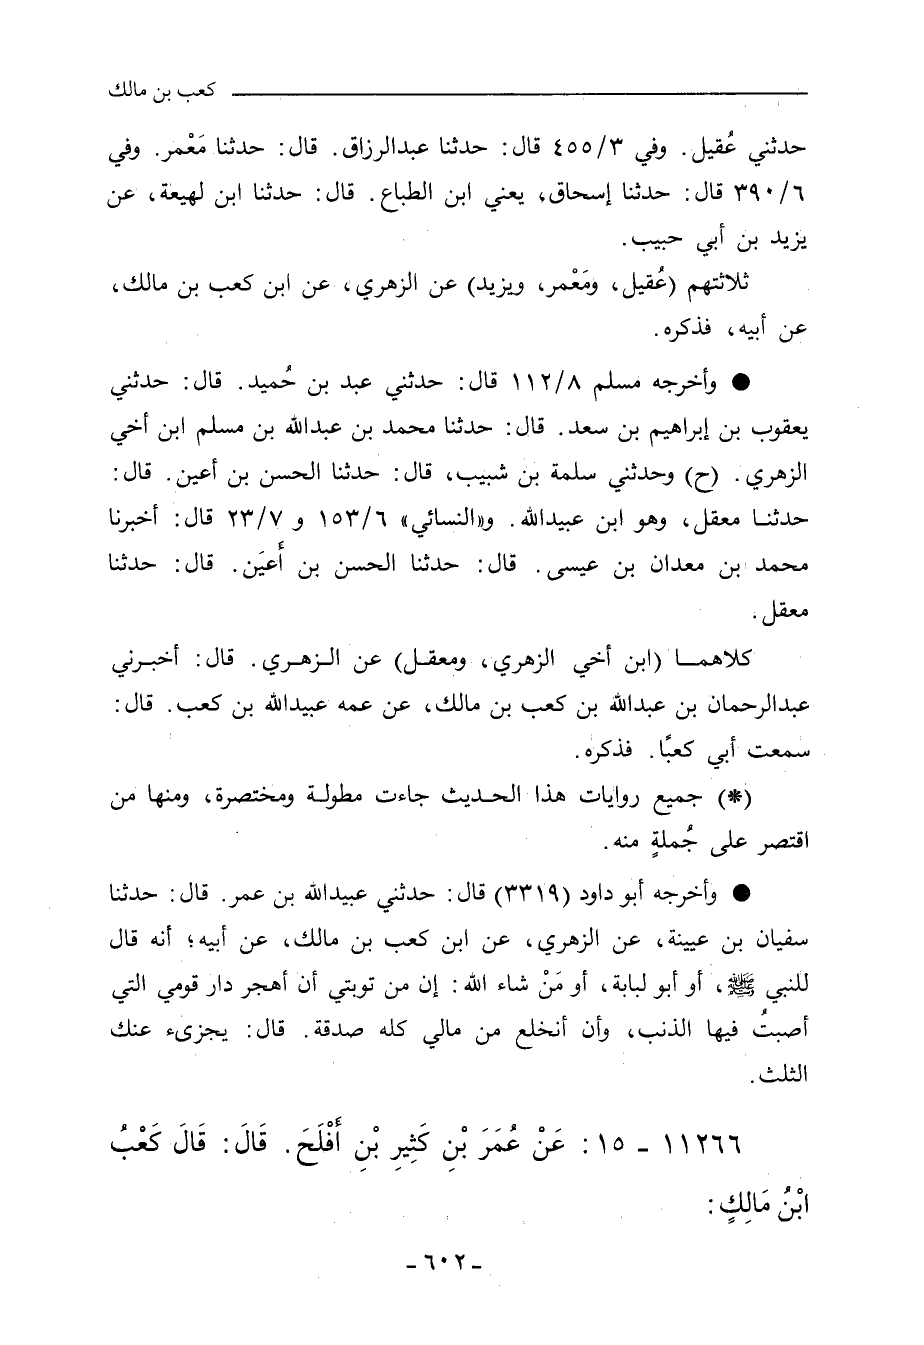 كعب بن مالك
حدثني عُقيل. وفي ٤٥٥/٣ قال: حدثنا عبدالرزاق. قال: حدثنا مَعْمر. وفي
٣٩٠/٦ قال: حدثنا إسحاق، يعني ابن الطباع. قال: حدثنا ابن لهيعة، عن
يزيد بن أبي حبيب.
ثلاثتهم (عُقيل، ومَعْمر، ويزيد) عن الزهري، عن ابن كعب بن مالك،
عن أبيه، فذكره.
● وأخرجه مسلم ١١٢/٨ قال: حدثني عبد بن حُميد. قال: حدثني
يعقوب بن إبراهيم بن سعد. قال: حدثنا محمد بن عبدالله بن مسلم ابن أخي
الزهري. (ح) وحدثني سلمة بن شبيب، قال: حدثنا الحسن بن أعين. قال:
حدثنا معقل، وهو ابن عبيدالله. و«النسائي» ١٥٣/٦ و ٢٣/٧ قال: أخبرنا
محمد بن معدان بن عيسى. قال: حدثنا الحسن بن أَعيَن. قال: حدثنا
معقل.
كلاهما (ابن أخي الزهري، ومعقل) عن الزهري. قال: أخبرني
عبدالرحمان بن عبدالله بن كعب بن مالك، عن عمه عبيدالله بن كعب. قال:
سمعت أبي كعبًا. فذكره.
(*) جميع روايات هذا الحديث جاءت مطولة ومختصرة، ومنها من
اقتصر على جُملةٍ منه.
● وأخرجه أبو داود (٣٣١٩) قال: حدثني عبيدالله بن عمر. قال: حدثنا
سفيان بن عيينة، عن الزهري، عن ابن كعب بن مالك، عن أبيه؛ أنه قال
للنبي ﷺ، أو أبو لبابة، أو مَنْ شاء الله: إن من توبتي أن أهجر دار قومي التي
أصبتُ فيها الذنب، وأن أنخلع من مالي كله صدقة. قال: يجزىء عنك
الثلث.
١١٢٦٦ - ١٥: عَنْ عُمَرَ بْنِ كَثِيرِ بْنِ أَفْلَحَ. قَالَ: قَالَ كَعْبُ
ابْنُ مَالِكٍ:
- ٦٠٢ -